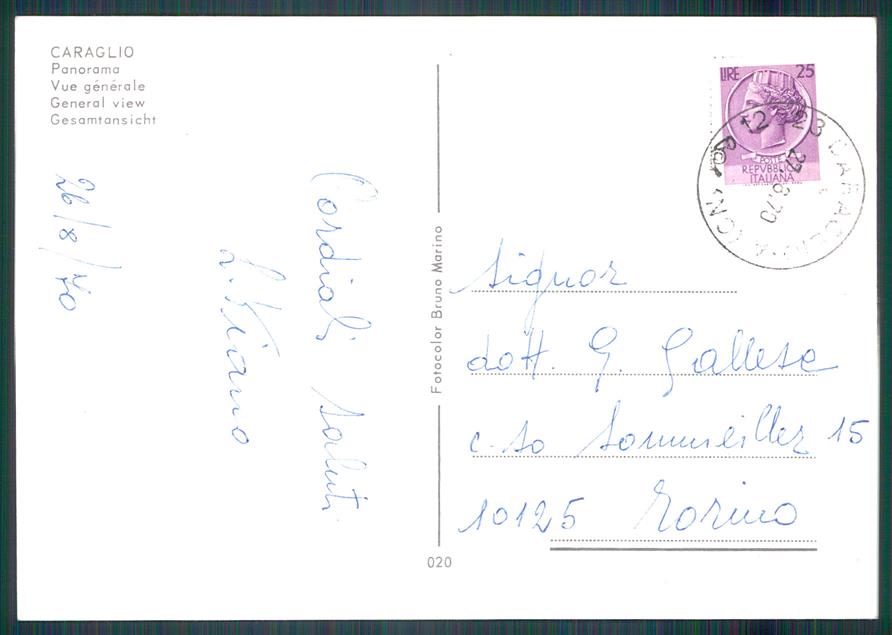 CARAGLIO
Panorama
Vue générale
General view
Gesamtansicht
26/8/70
Cordiali saluti
Fotocolor Bruno Marino
020
LIRE 25
POSTE
REPVBBLICA
ITALIANA
Signor
dott. G. Gallese
c.so Sommeiller 15
10125 Torino